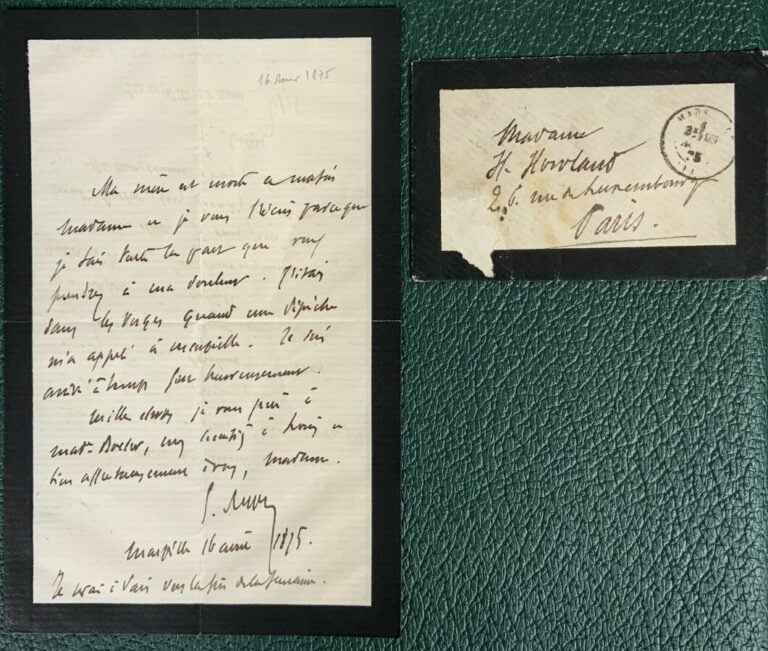 16 Avril 1875
Ma mère est morte ce matin
madame et je vous l'écris parce que
je sais toute la part que vous
prendrez à ma douleur. J'étais
dans les Vosges quand une dépêche
m'a appelé à Marseille. Je suis
arrivé à temps fort heureusement.
Mille choses je vous prie à
mad.
bien affectueusement à vous, madame.
Marseille 16 avril 1875.
Je serai à Paris vers la fin de la semaine.
Madame
H. Howland
26. rue de Luxembourg
Paris.